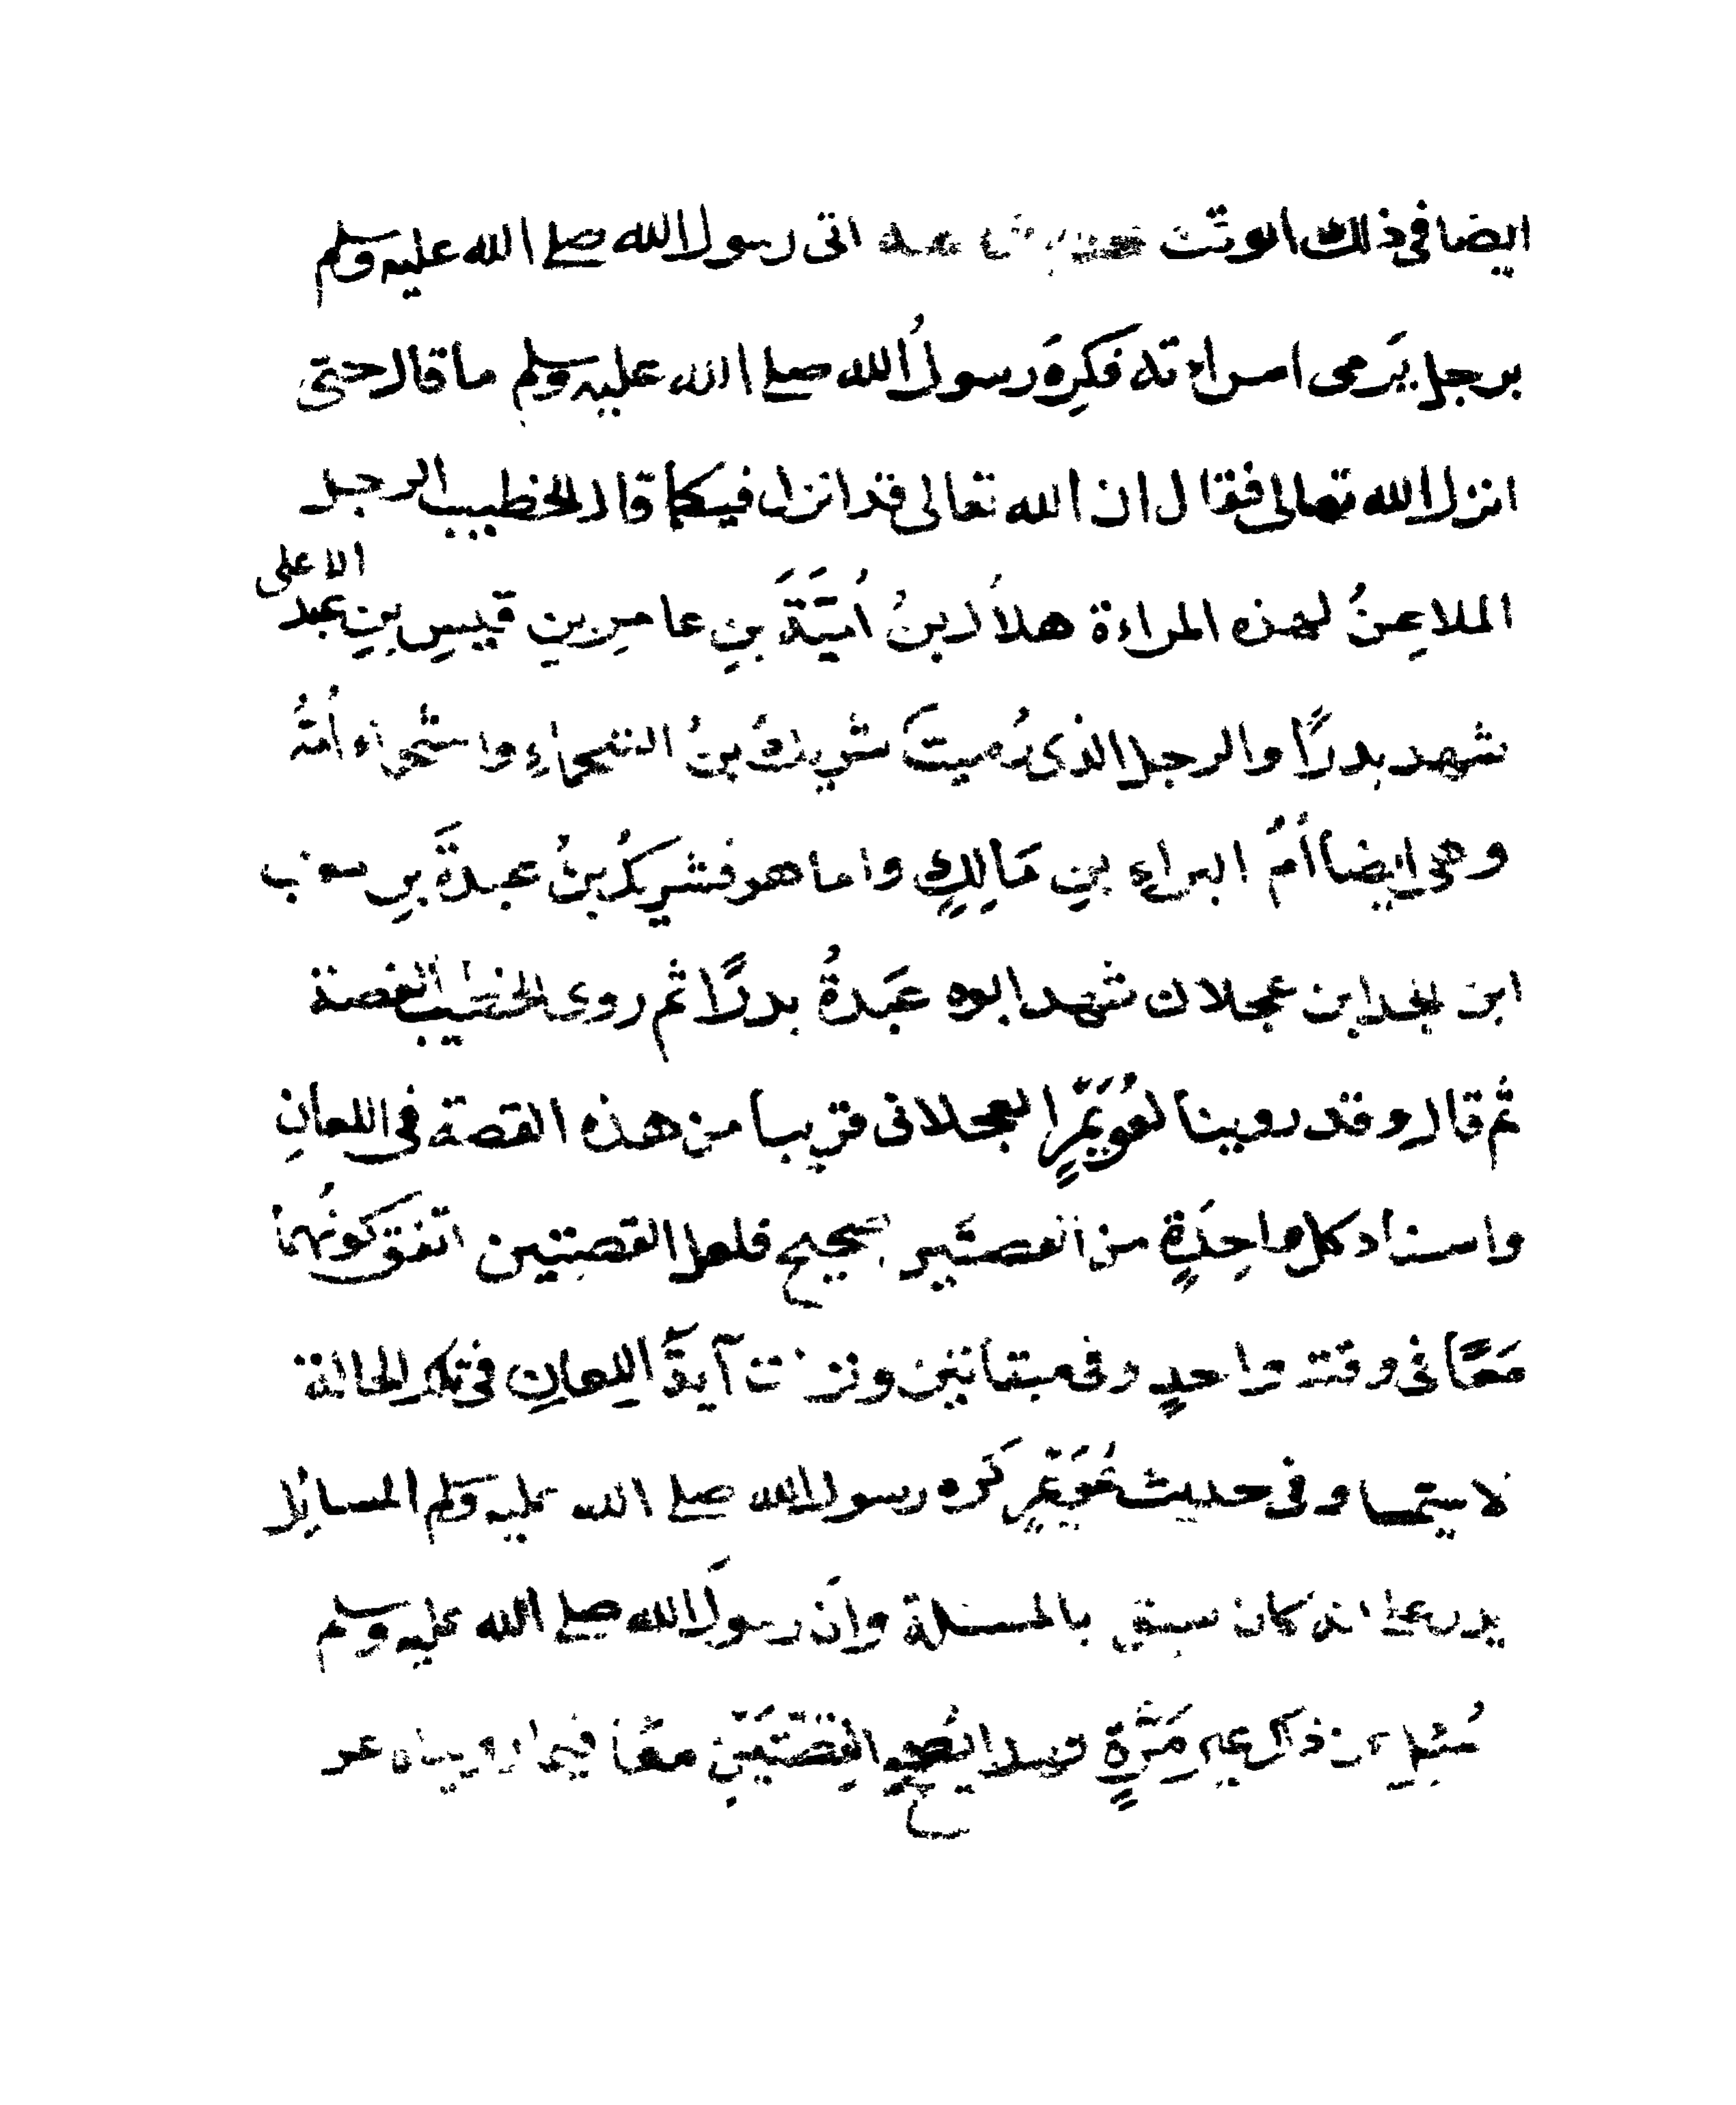 ايضا في ذلك اتى رسول الله صلى الله عليه وسلم
برجل يَرمى امراءته فكرِهَ رسولُ الله صلى الله عليه وسلم ما قال حتى
انزل الله تعالى فقال ان الله تعالى قد انزل فيكما قال الخطيب الرجل
الملاعِنُ لهذه المراءة هلالُ بنُ اُمَيَّةَ بنِ عامرِ بنِ قيسِ بنِ عبد الاعلى
شهد بدرًا والرجل الذى رُميتَ شريكُ بنُ السحماءِ والسحماء اُمُّهُ
وهي ايضا اُمُّ البراءِ بنِ مَالِكٍ واما هو فشريكُ بنُ عبدةَ بنِ
ابن الجد ابن عجلان شهد ابوه عَبَدةُ بدرًا ثم روى الخطيب القصة
ثم قال وقد روينا لعُوَيْمِرٍ العجلانى قريبا من هذه القصة في اللعانِ
واسناد كل واحِدَةٍ من القصتين صحيح فلعل القصتين اتفق كونُهما
مَعًا فى وقت واحدٍ وفى ميقاتين ونزلت آيةُ اللِعانِ فى تلك الحالة
لا سيَّما وفى حديث عُوَيْمِرٍ كَرِه رسول الله صلى الله عليه وسلم المسائِل
يدل على انه كان سبق بالمسئلة وانَّ رسولَ الله صلى الله عليه وسلم
سُئِلَ عن ذلك غير مَرَّةٍ القِصَّتَيْنِ معًا فيما رويناه عن